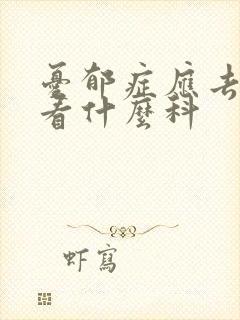 憂郁症應去
看什麼科
虾寫